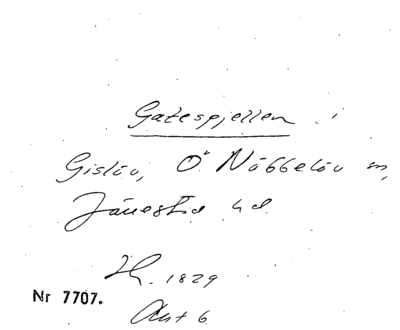 Gatespjellen i
Gislöv, Ö Nöbbelöv m,
Järrestad hd
1829
Nr 7707.
6